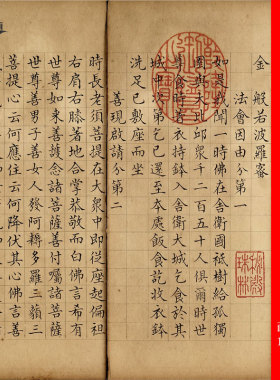 金
般若波羅蜜
法會因由分第一
如是我聞一時佛在舍衛國祇樹給孤獨
園與大比丘眾千二百五十人俱爾時世
尊食時著衣持鉢入舍衛大城乞食於其
城中次第乞已還至本處飯食訖收衣鉢
洗足已敷座而坐
善現啟請分第二
時長老須菩提在大眾中即從座起偏袒
右肩右膝著地合掌恭敬而白佛言希有
世尊如來善護念諸菩薩善付囑諸菩薩
世尊善男子善女人發阿耨多羅三藐三
菩提心云何應住云何降伏其心佛言善